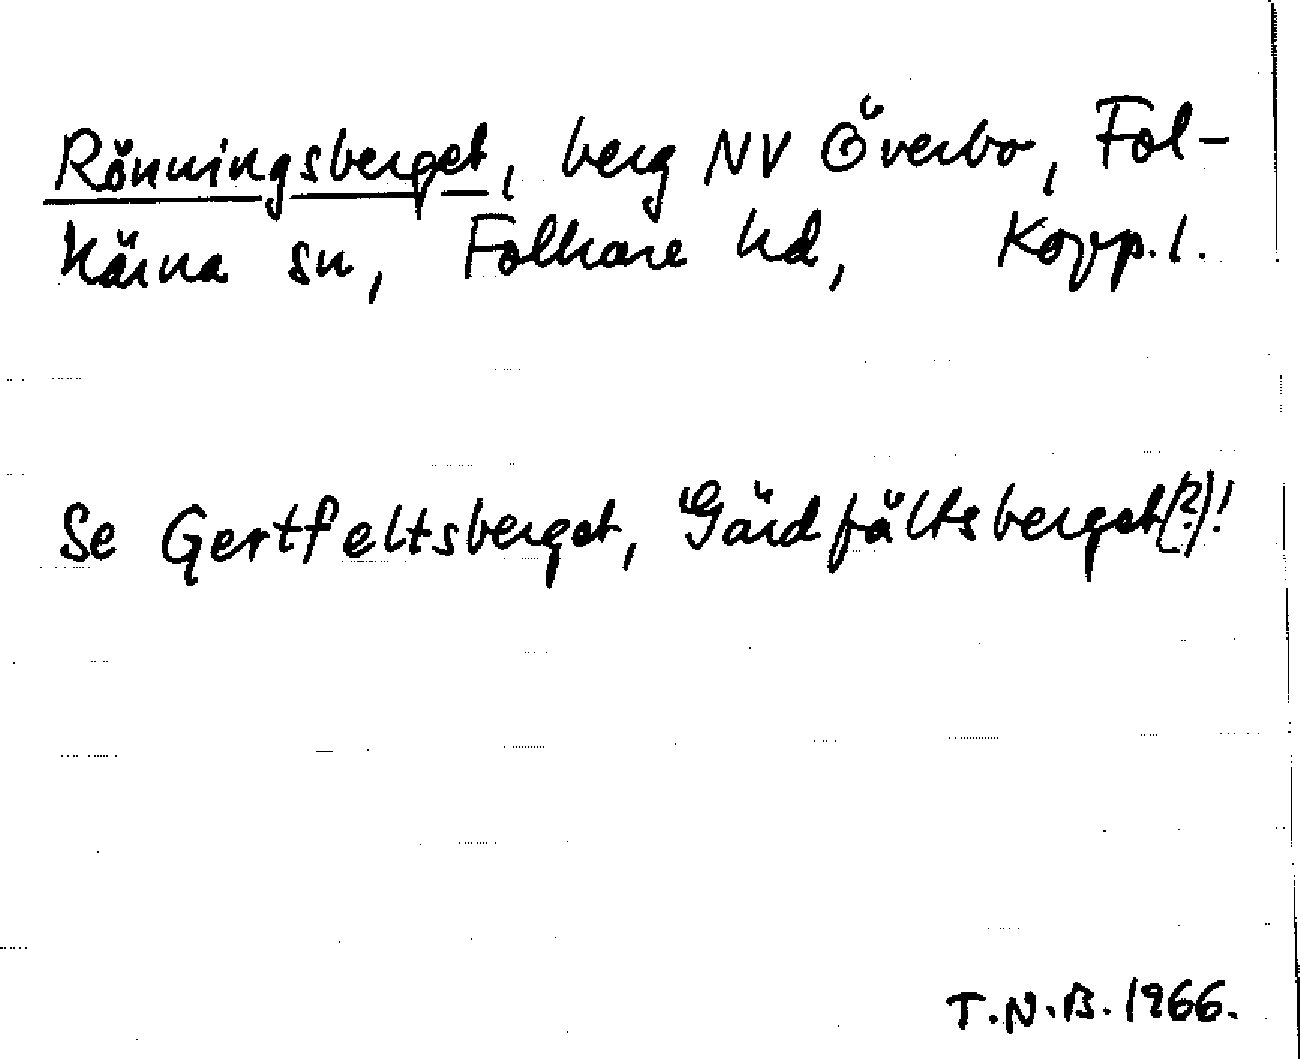 Rönningsberget, berg NV Överbo, Fol-
kärna sn, Folkare hd, Kopp.l.
Se Gertfeltsberget, Gärdfältsberget(?)!
T.N.B. 1966.